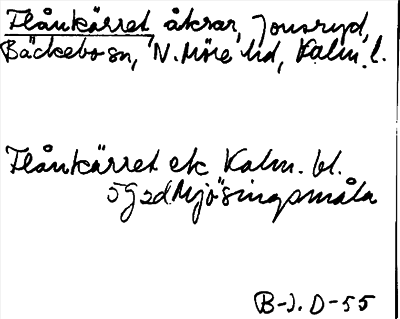 Flånkärret åkrar, Jonsryd,
Bäckebo sn, N. Möre hd, Kalm. l.
Flånkärret etc Kalm. bl.
5 g sd. Mjösingsmåla
B-J. D-55